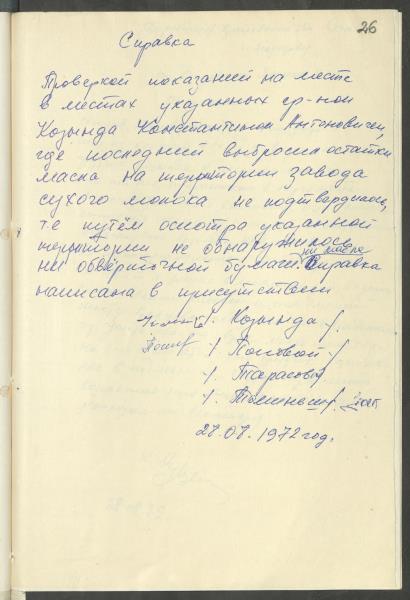 26
Справка
Проверкой показаний на месте
в местах указанных гр-ном
Козында Константином Антоновичем,
где последний выбросил остатки
масла на территории завода
сухого молока не подтвердилось,
т.е путём осмотра указанной
территории не обнаружилось
ни масла
ни обвёрточной бумаги. Справка
написана в присутствии
/ Козында /.
/ Полевой /
/ Тарасов /
/
28.08.1972 год.